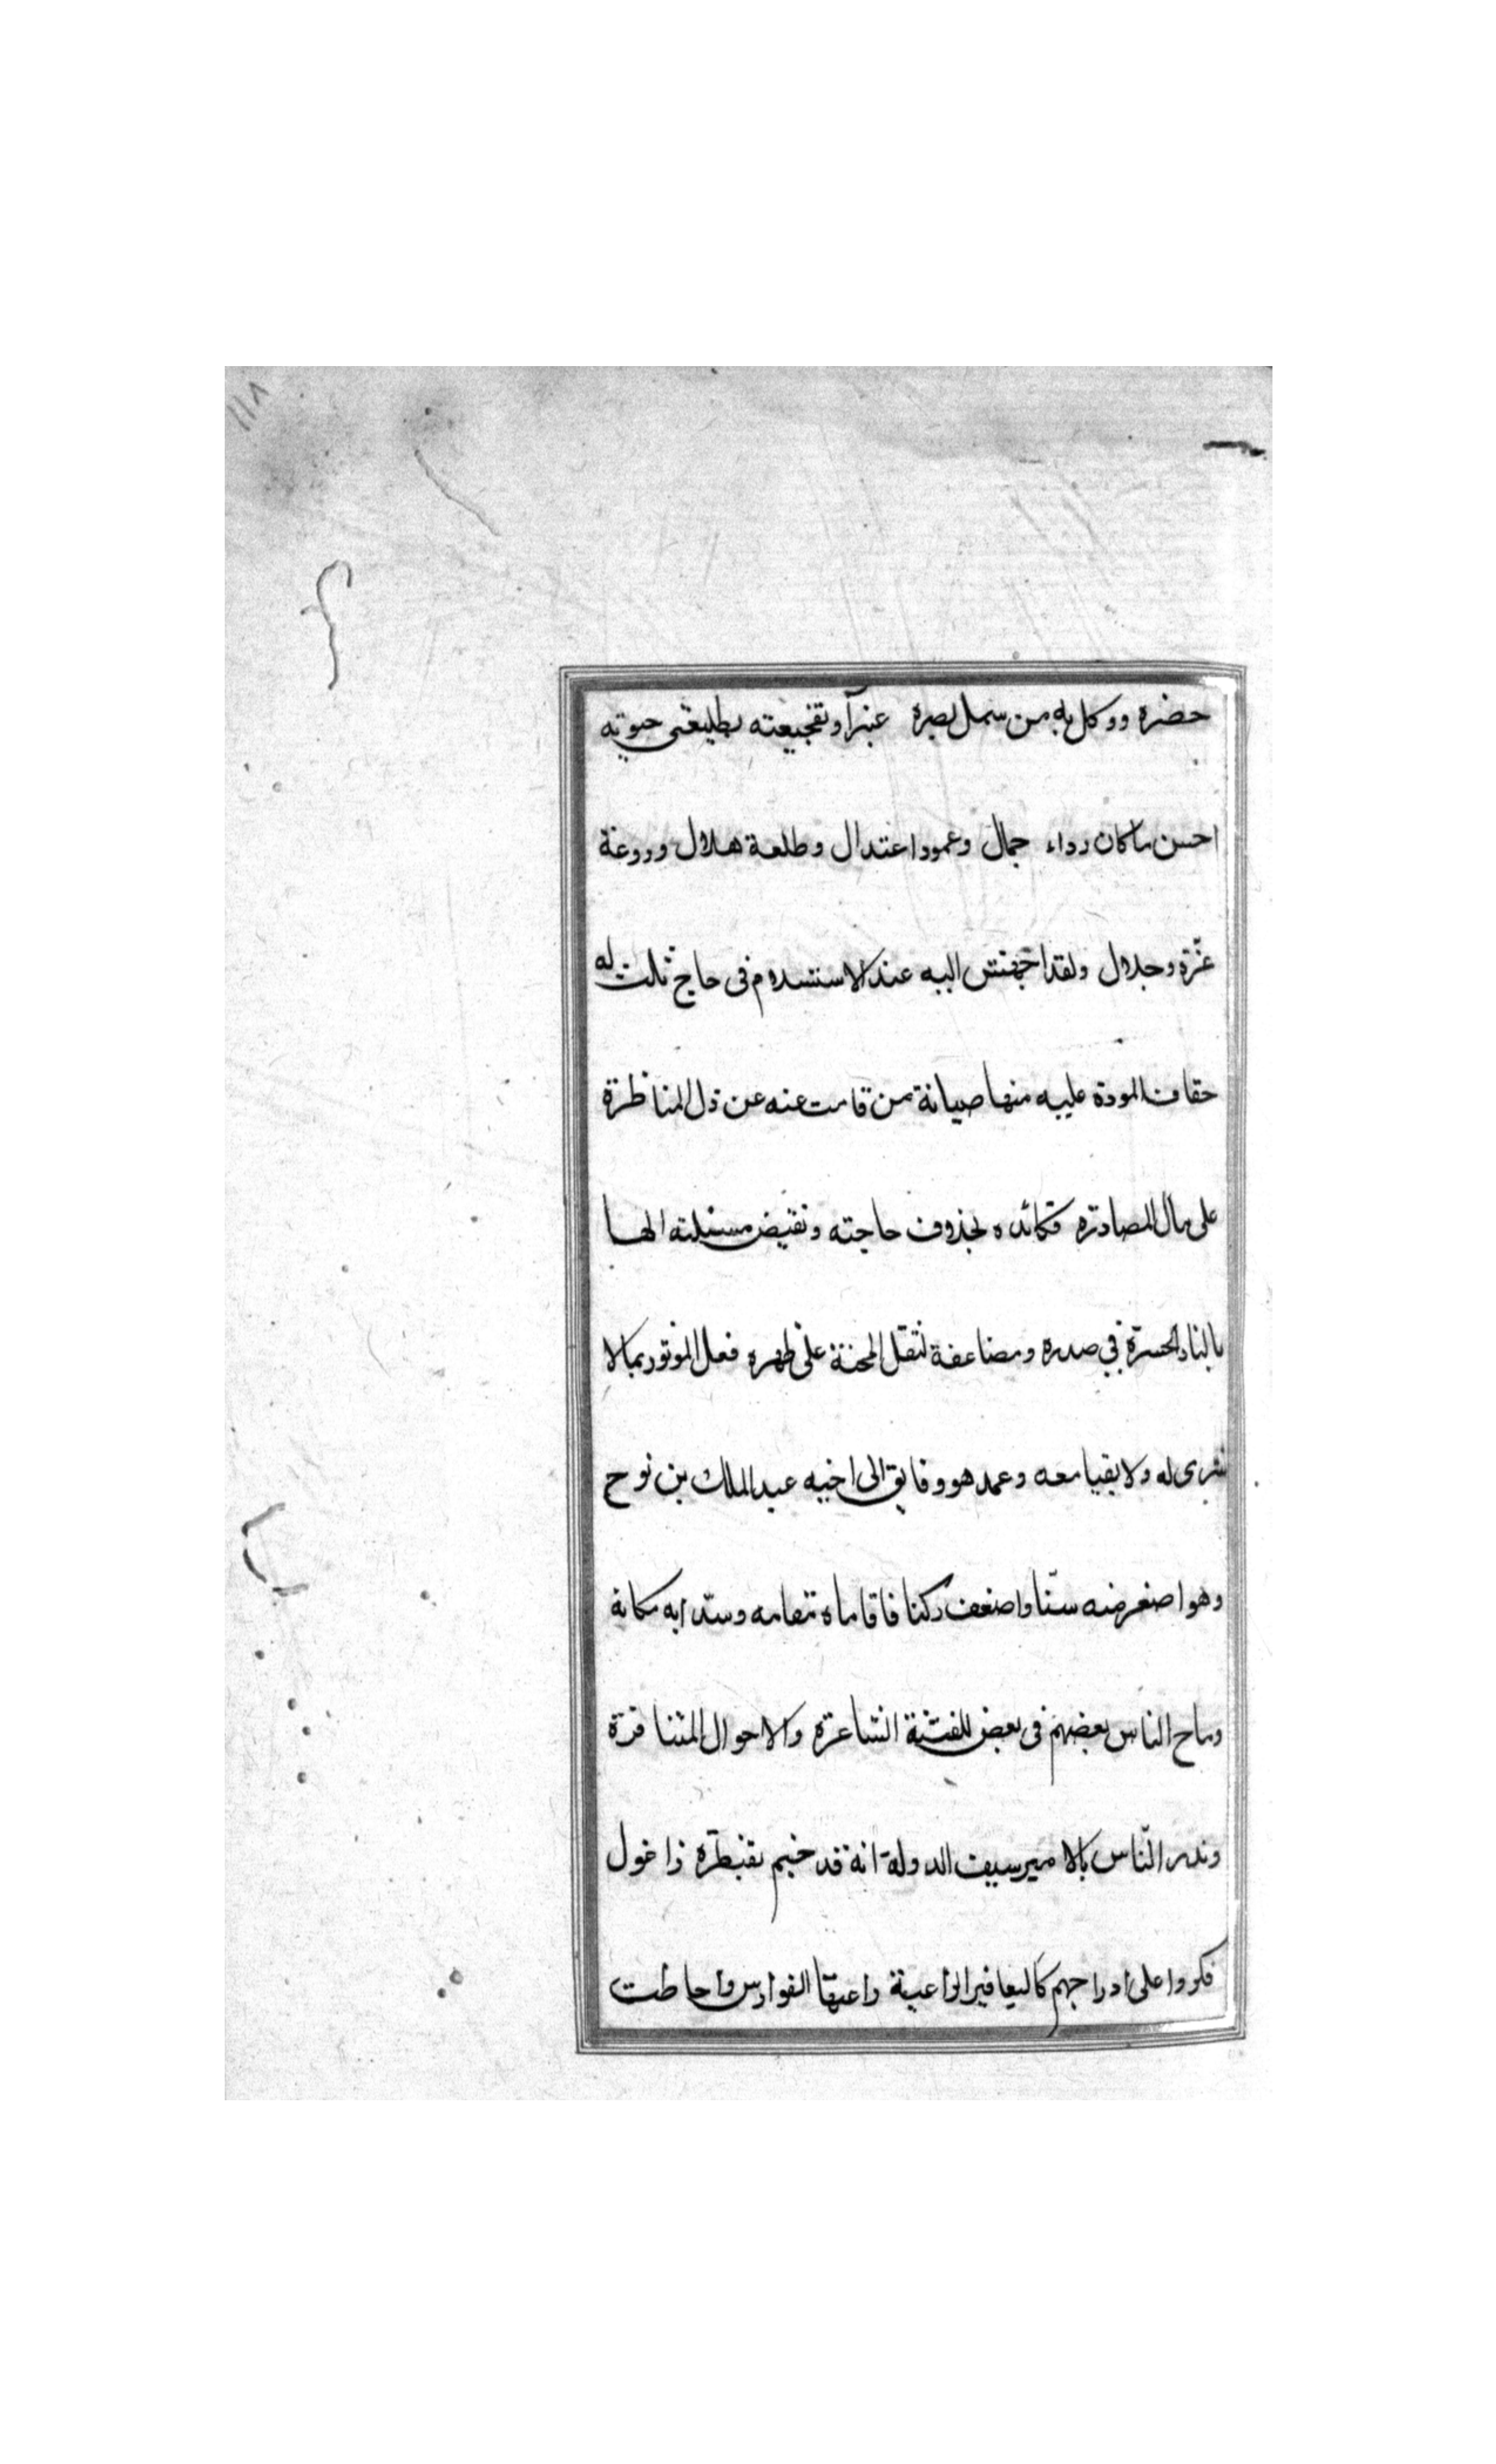 ١١٨
حضره ووكل به من سمل بصره غبرآ وتفجيعته بطليعتى حيوته
احسن ما كان رداء جمال وعمود اعتدال وطلعة هلال وروعة
عزّة وجلال ولقد اجهش اليه عند الاستسلام فى حاج ثلث له
حقاف المودة عليه منها صيانة من قامت عنه عن ذل المناظرة
على مال المصادرة فكائده حاجته ونقيض مسئلته الها
بالنار الحسرة في صدره ومضاعفة لثقل المحنة على ظهره فعل الموتور بمالا
له ولا بقيا معه وعمد هو وفايق الى اخيه عبد الملك بن نوح
وهو اصغر منه سنّا واضعف ركنا فاقاماه مقامه وسدّا به مكانه
وماح الناس بعضهم فى بعض للفتنة الشاغرة والاحوال المتنافرة
ونذر النّاس بالامير سيف الدولة انه قد خيم بقنطرة زاغول
فكروا على ادراجهم كاليعافير الفوارس واحاطت